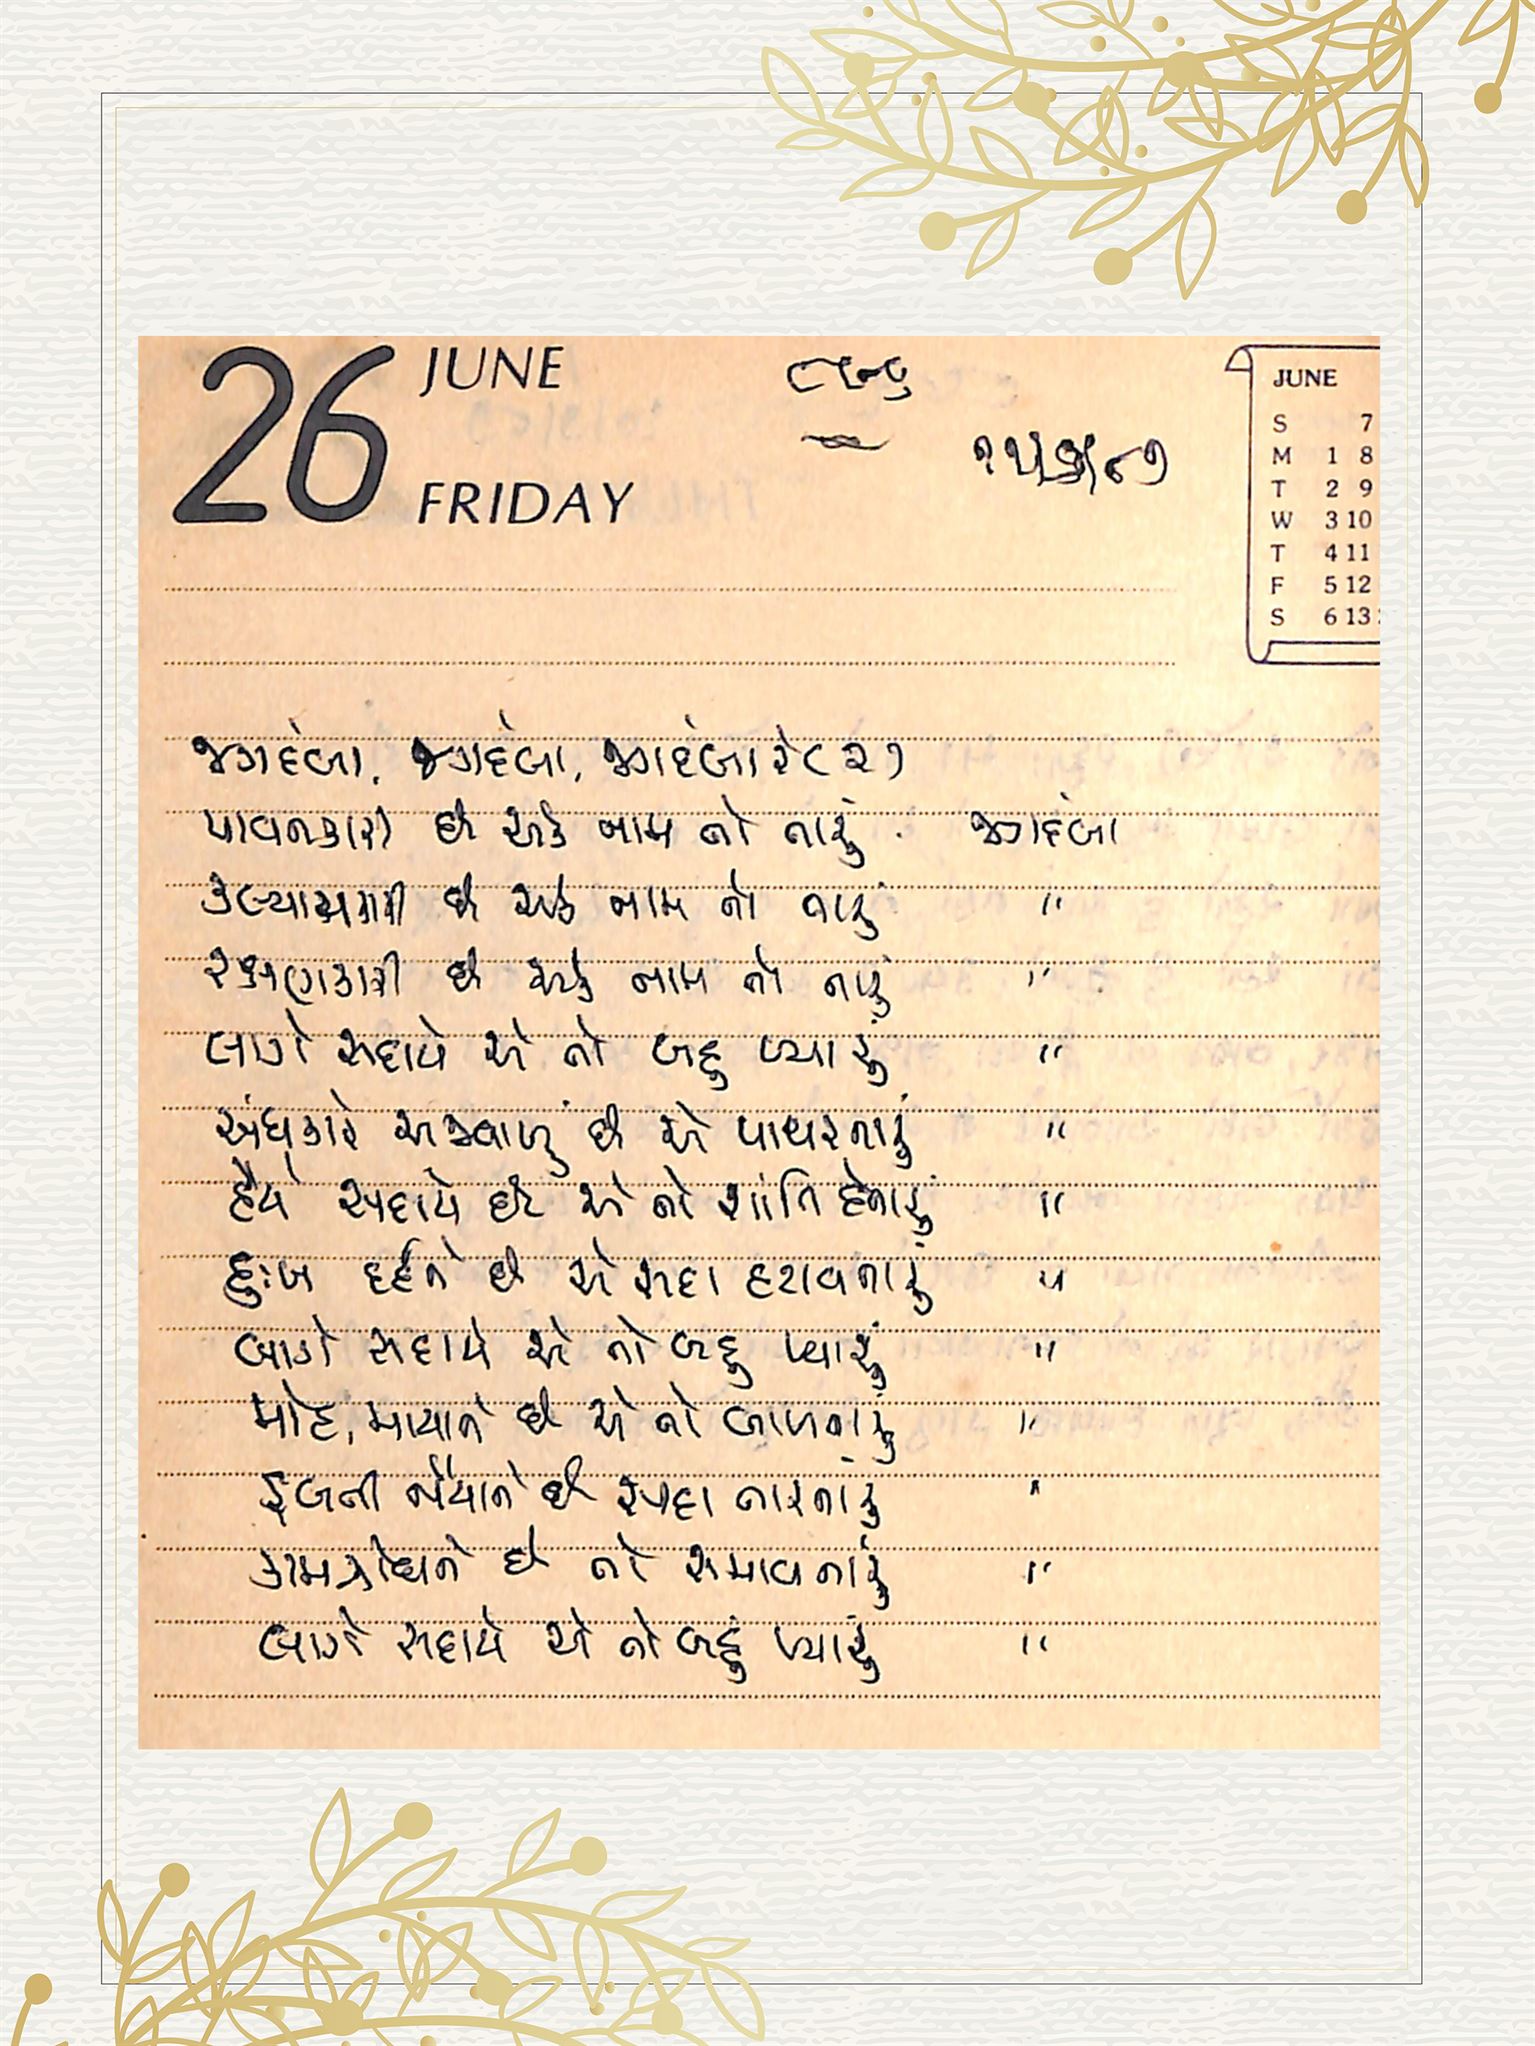 26 JUNE
FRIDAY
૧૫
JUNE
S 7
M 1 8
T 2 9
W 3 10
T 4 11
F 5 12
S 6 13
જગદંબા, જગદંબા, જગદંબા રે (૨)
પાવનકારી છે એક નામ તો તારું . જગદંબા
કલ્યાણકારી છે એક નામ તો તારું "
રક્ષણકારી છે એક નામ તો તારું "
લાગે સદાયે એ તો બહુ પ્યારું "
અંધકારે અજવાળું છે એ પાથરનારું "
હૈયે સદાયે છે એ તો શાંતિ દેનારું "
દુઃખ દર્દને છે એ સદા હટાવનારું "
લાગે સદાયે એ તો બહુ પ્યારું "
મોહ, માયાને છે એ તો બાળનારું "
ડૂબતી નૈયાને છે સદા તારનારું "
કામક્રોધને છે તો સમાવનારું "
લાગે સદાયે એ તો બહું પ્યારું "